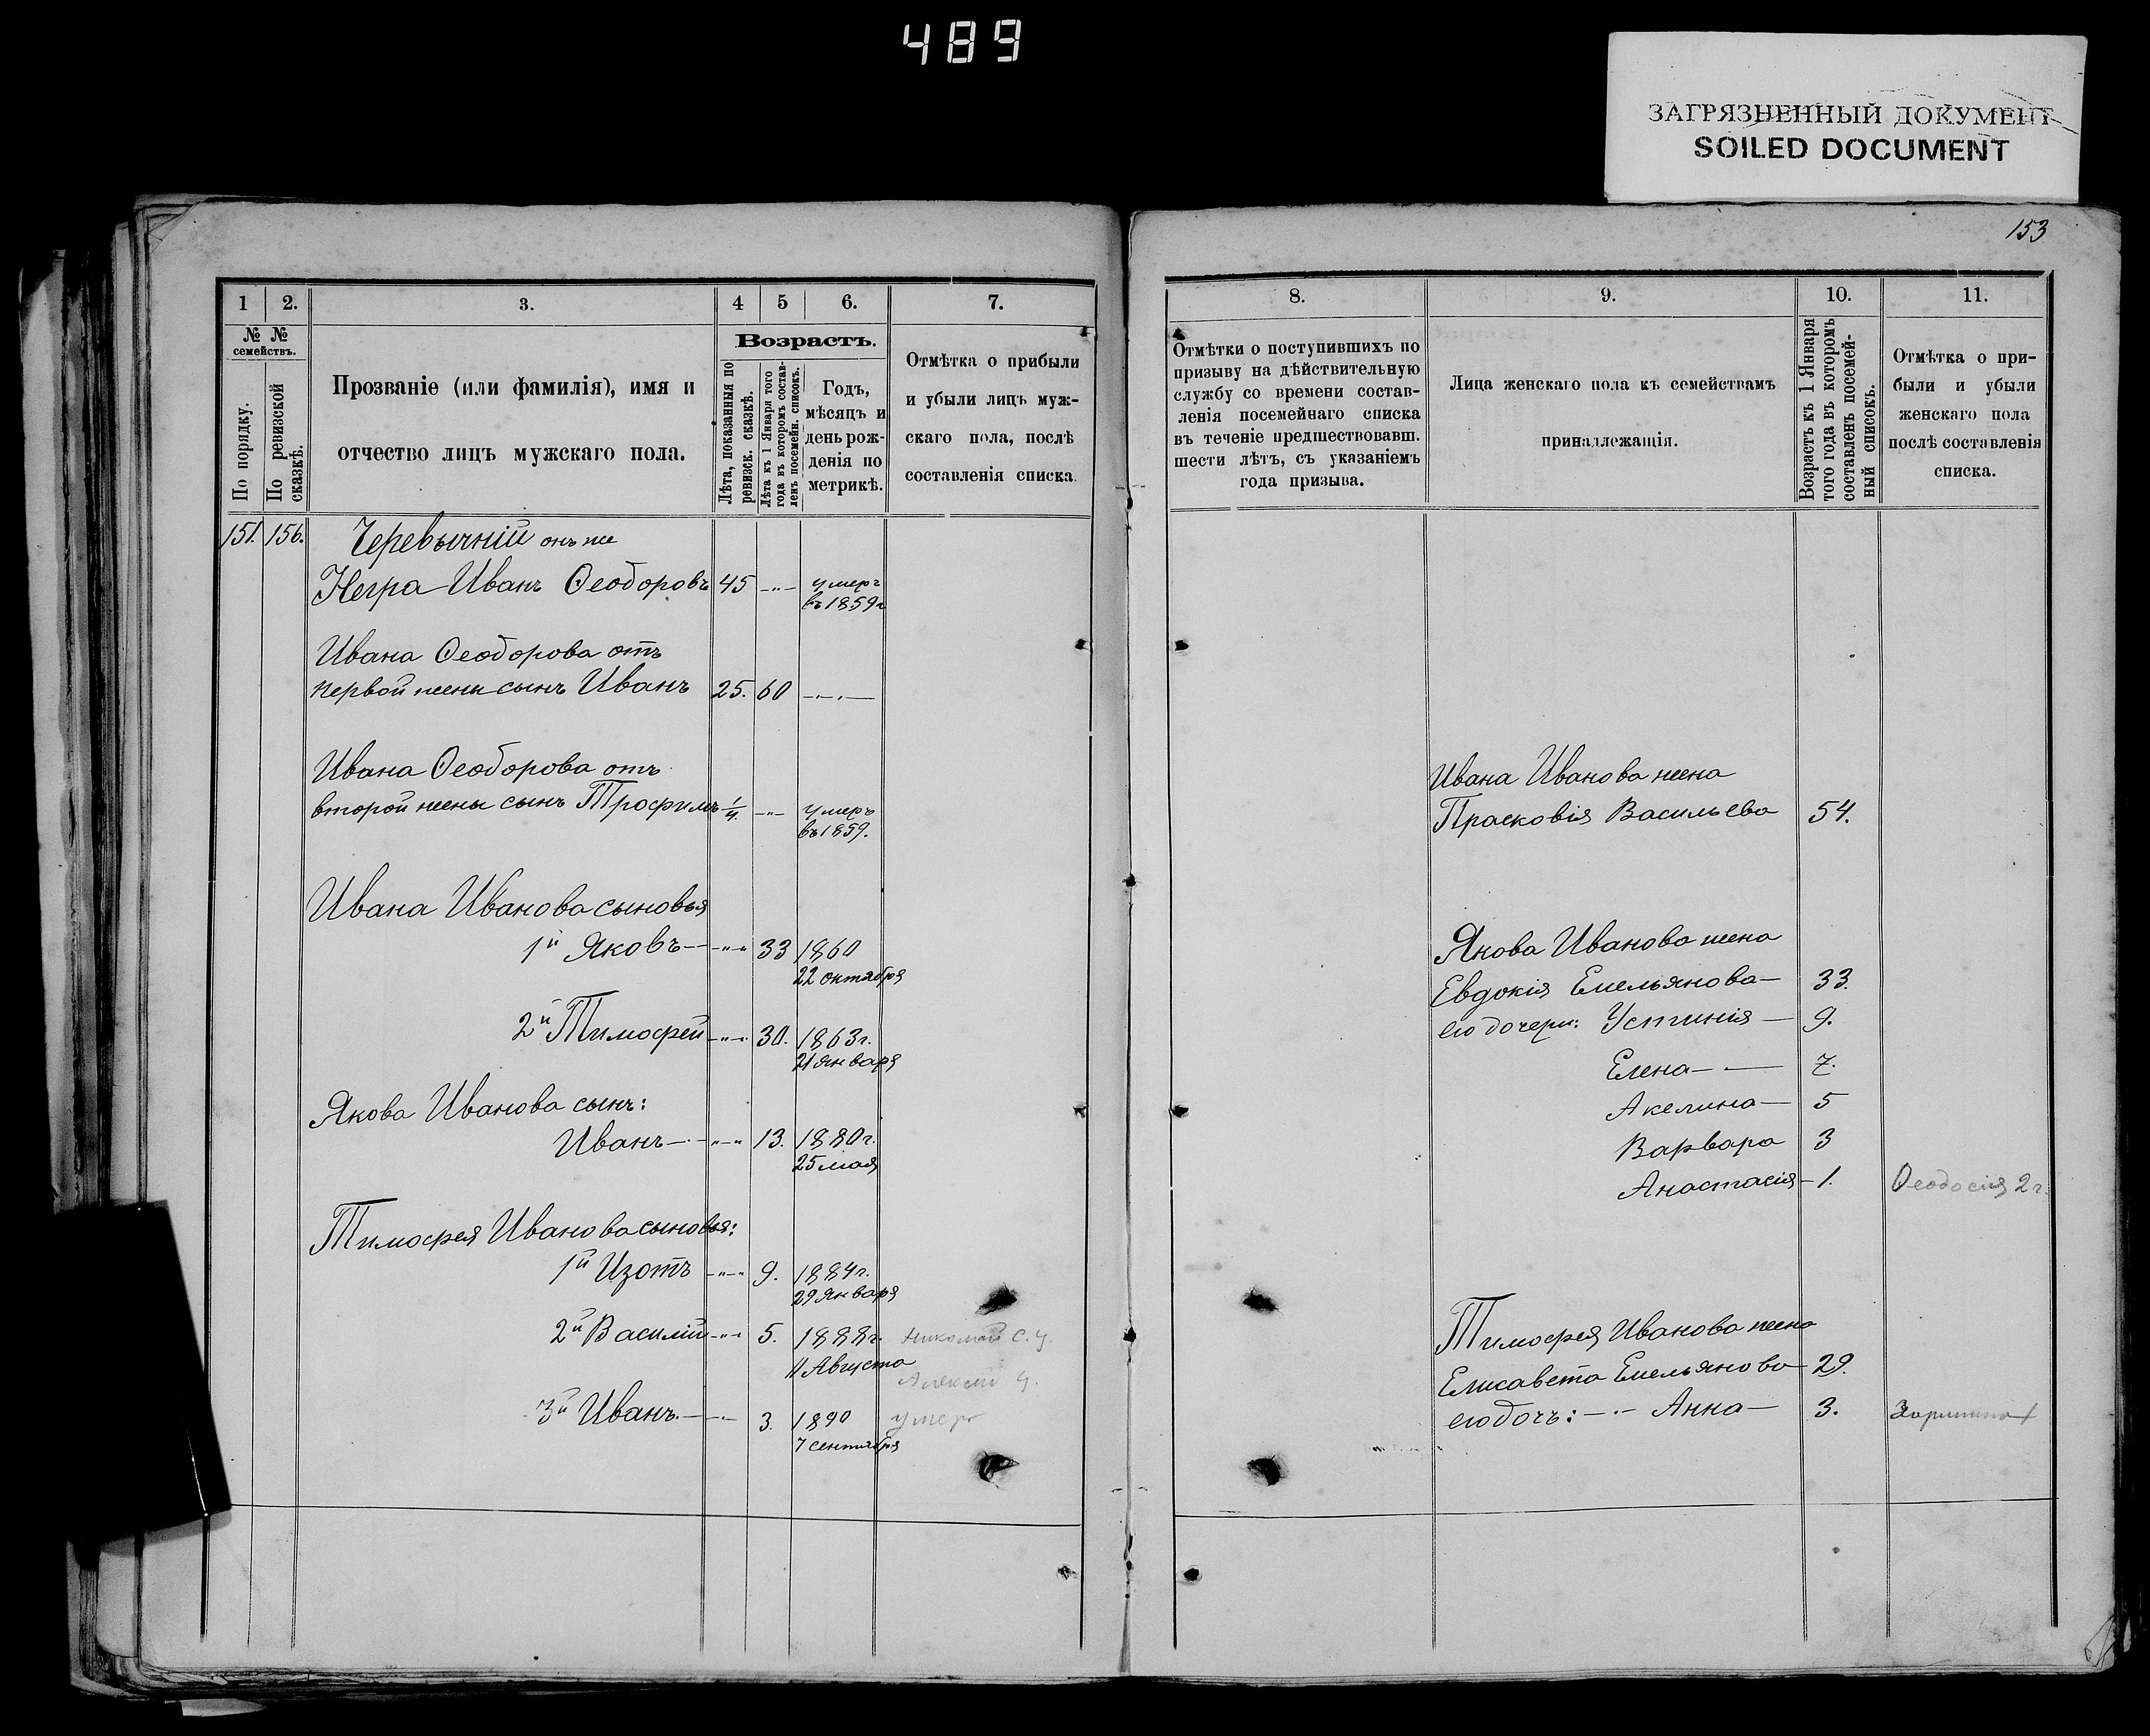 489
ЗАГРЯЗНЕННЫЙ ДОКУМЕНТ
SOILED DOCUMENT
153
1 2. 3. 4 5 6. 7.
№ № семействъ.
По порядку.
По ревизской сказкѣ.
Прозваніе (или фамилія), имя и
отчество лицъ мужскаго пола.
Возрастъ.
Лѣта, показанныя по ревизск. сказкѣ.
Лѣта къ 1 Января того года въ которомъ составленъ посемейн. списокъ.
Годъ,
мѣсяцъ и
день рож-
денія по
метрикѣ.
Отмѣтка о прибыли
и убыли лицъ муж-
скаго пола, послѣ
составленія списка.
151. 156. Черевычній онъ же
Негра Иванъ Ѳеодоровъ 45 —"— умеръ
въ 1859г
Ивана Ѳеодорова отъ
первой жены сынъ Иванъ 25. 60 —"—
Ивана Ѳеодорова отъ
второй жены сынъ Трофимъ 1/4. —"— умеръ
въ 1859.
Ивана Иванова сыновья
1й Яковъ — —"— 33 1860
22 октября
2й Тимофей —"— 30. 1863г.
21 января
Якова Иванова сынъ:
Иванъ — —"— 13. 1880г.
25 мая
Тимофея Иванова сыновья:
1й Изотъ —"— 9. 1884г.
29 января
2й Василій —"— 5. 1888г. Николай
11 Августа
Алексѣй
3й Иванъ — —"— 3. 1890 умеръ
7 сентября
8. 9. 10. 11.
Отмѣтки о поступившихъ по
призыву на дѣйствительную
службу со времени состав-
ленія посемейнаго списка
въ теченіе предшествовавш.
шести лѣтъ, съ указаніемъ
года призыва.
Лица женскаго пола къ семействамъ
принадлежащія.
Возрастъ къ 1 Января
того года въ которомъ
составленъ посемей-
ный списокъ.
Отмѣтка о при-
были и убыли
женскаго пола
послѣ составленія
списка.
Ивана Иванова жена
Прасковія Васильева 54.
Якова Иванова жена
Евдокія Емельянова — 33.
его дочери: Устинія — 9.
Елена — — 7.
Акелина — 5
Варвара 3
Анастасія — 1. Ѳеодосія 2 г.
Тимофея Иванова жена
Елисавета Емельянова 29.
его дочь: — Анна — 3.